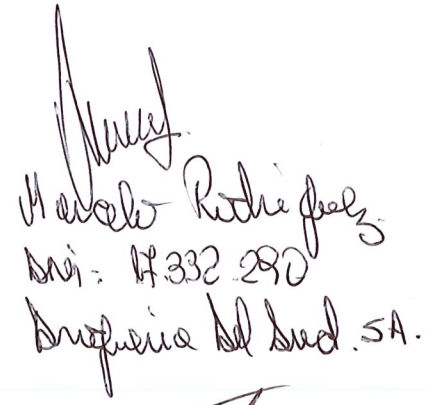 Marcelo Rodriguez
DNI: 17.332.290
Drogueria Del Sud. SA.